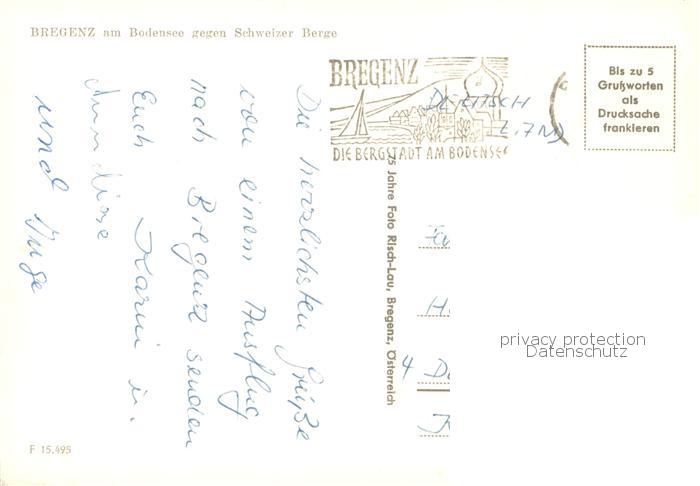 BREGENZ am Bodensee gegen Schweizer Berge
BREGENZ
DIE BERGSTADT AM BODENSEE
Bis zu 5
Grußworten
als
Drucksache
frankieren
Die herzlichsten Grüße
von einem Ausflug
nach Bregenz senden
Euch Karin u.
und Inge
75 Jahre Foto Risch-Lau, Bregenz, Österreich
H.
4 D
privacy protection
Datenschutz
F 15.495